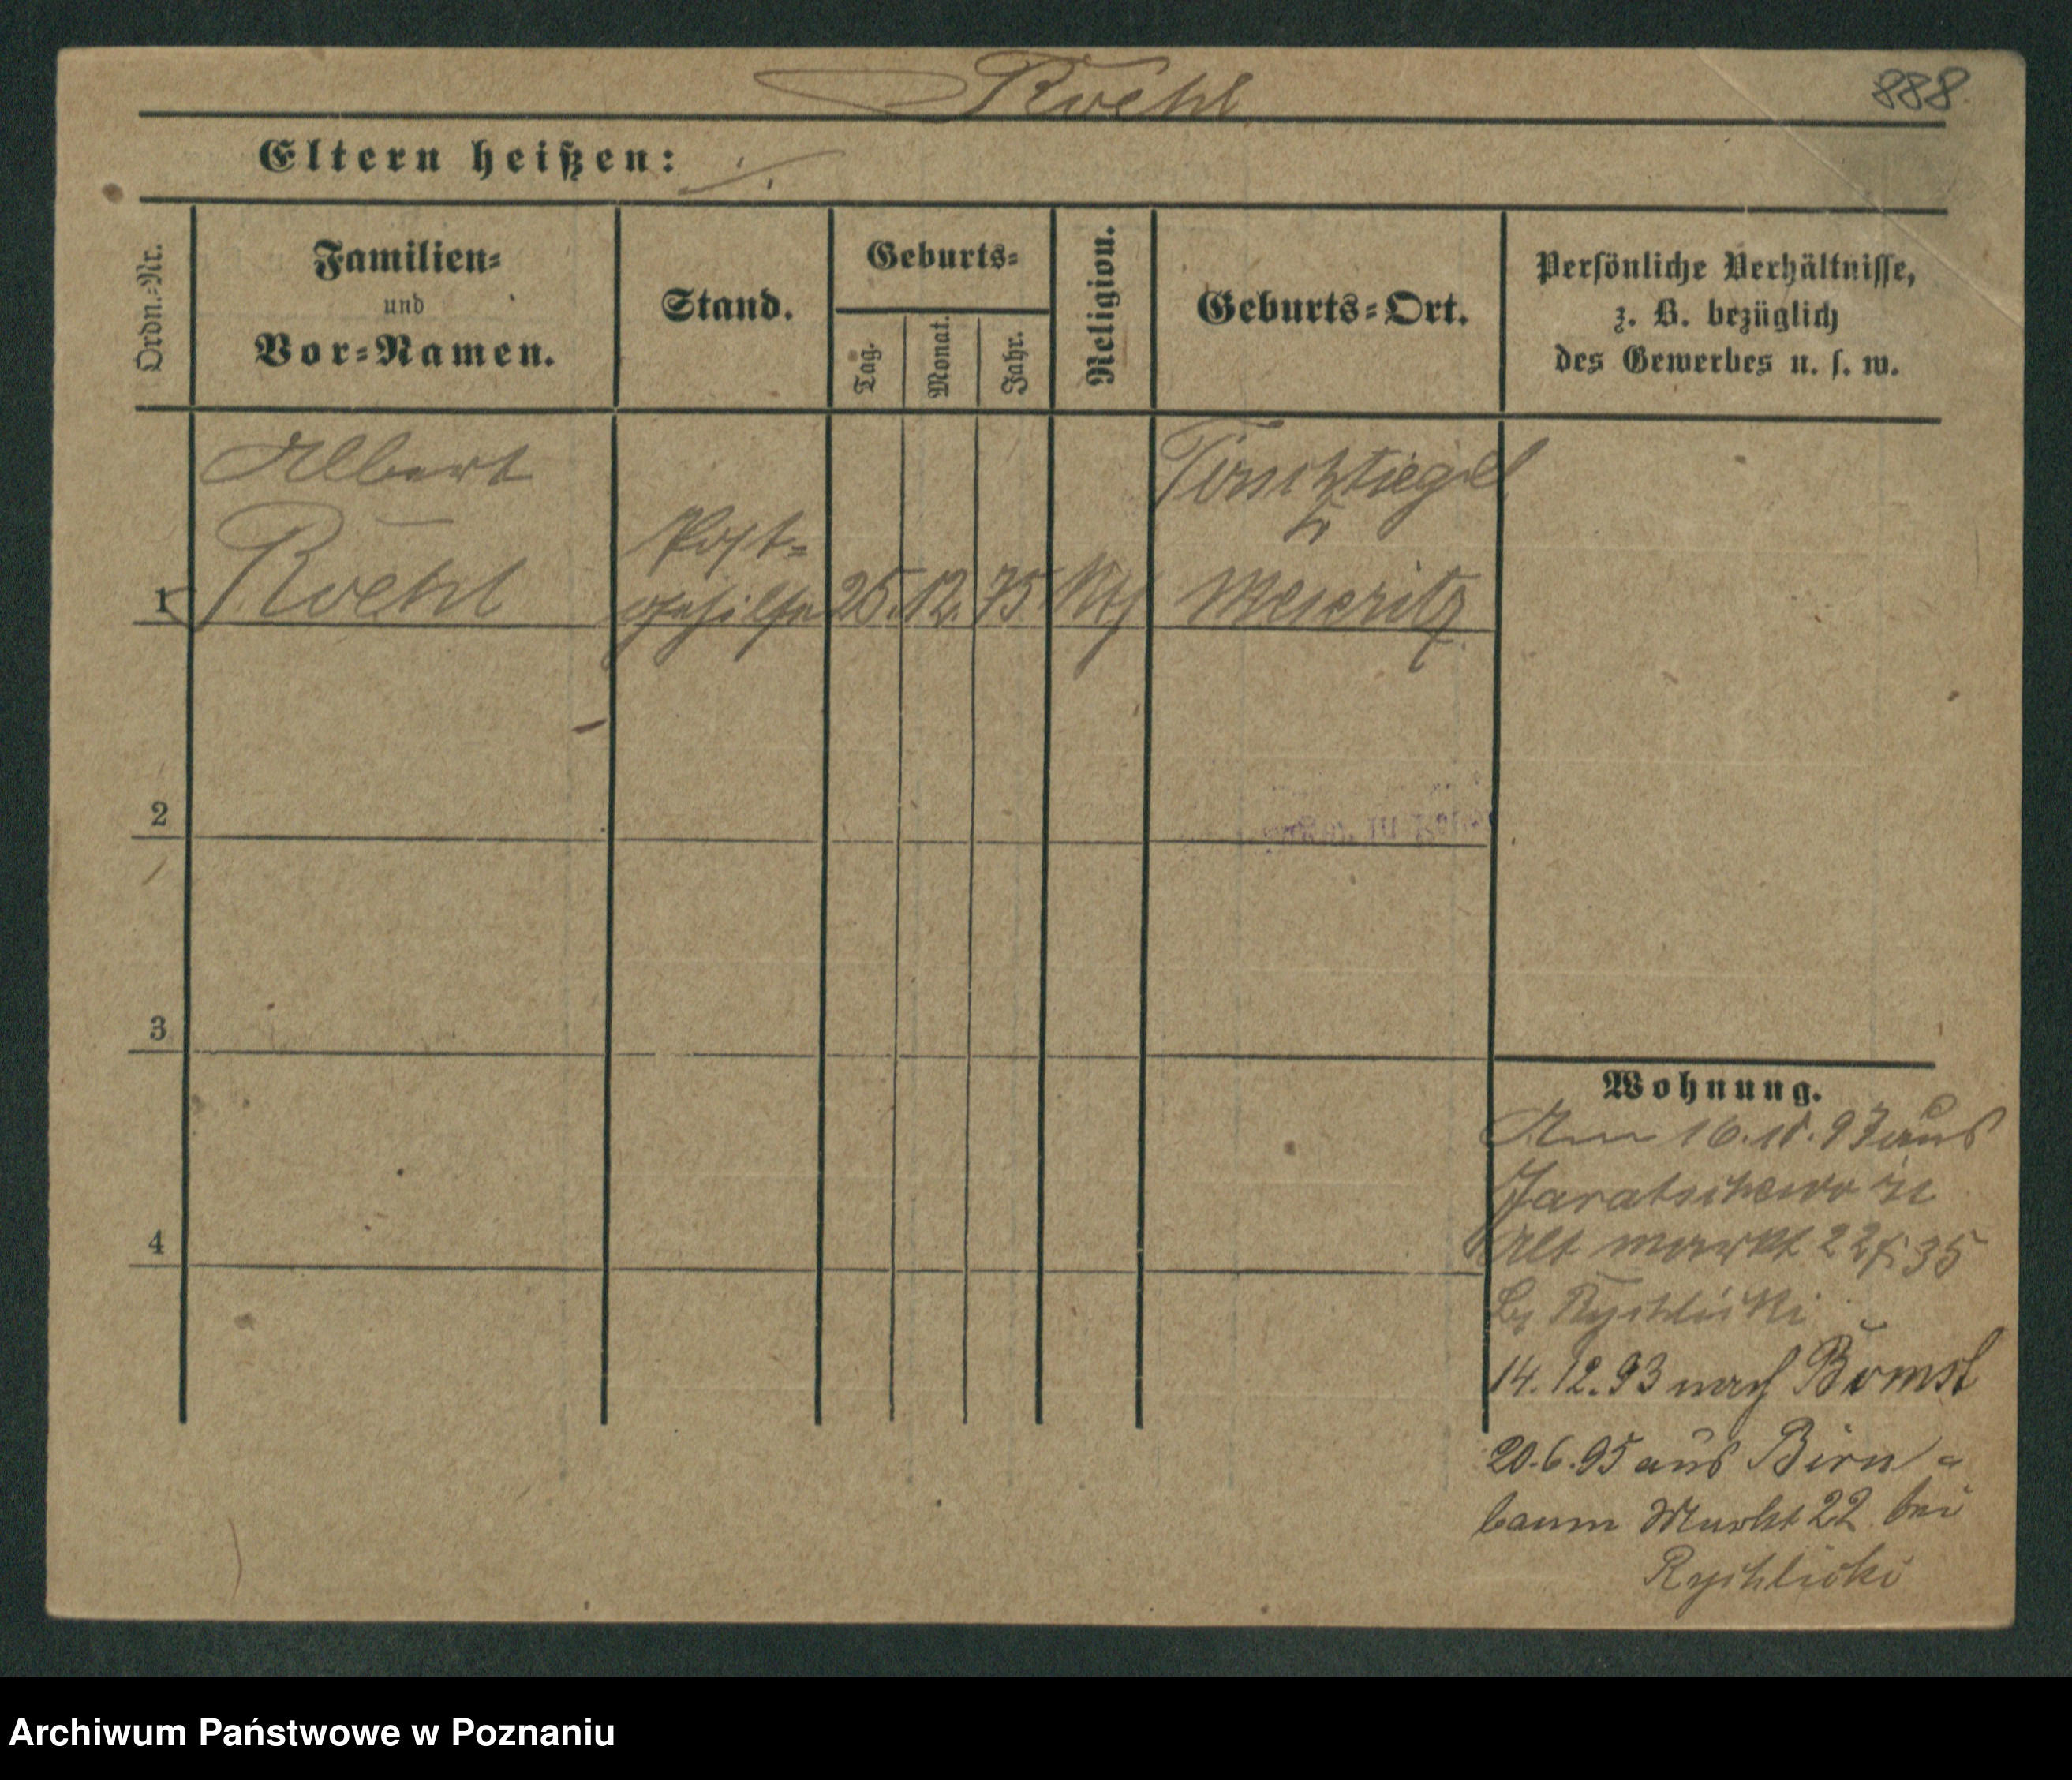 Roehl
888.
Eltern heißen: ./.
Ordn.-Nr.
Familien-
und
Vor-Namen.
Stand.
Geburts-
Tag.
Monat.
Jahr.
Religion.
Geburts-Ort.
Persönliche Verhältnisse,
z. B. bezüglich
des Gewerbes u. s. w.
Albert
Roehl
Post-
gehilfe
25. 12. 75
Tirschtiegel
Meseritz
1
2
3
4
Wohnung.
Am 93 aus
Jaratschewo in
Alt markt 22
Rychlicki
14.12.93 nach Bomst
20.6.95 aus Birn-
baum Markt 22 bei
Rychlicki
Archiwum Państwowe w Poznaniu